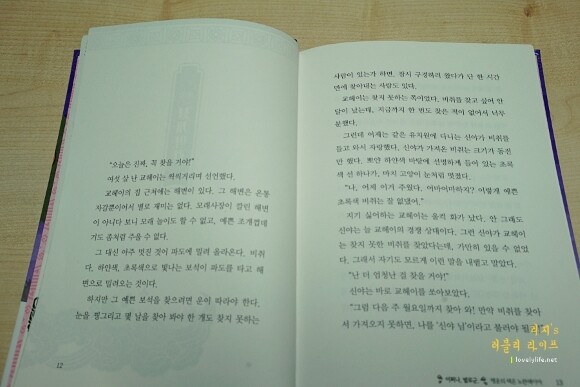 "오늘은 진짜, 꼭 찾을 거야!"
여섯 살 난 교헤이는 씩씩거리며 선언했다.
교헤이의 집 근처에는 해변이 있다. 그 해변은 온통
자갈뿐이어서 별로 재미는 없다. 모래사장이 깔린 해변
이 아니다 보니 모래 놀이도 할 수 없고, 예쁜 조개껍데
기도 좀처럼 주울 수 없다.
그 대신 아주 멋진 것이 파도에 밀려 올라온다. 비취
다. 하얀색, 초록색으로 빛나는 보석이 파도를 타고 해
변으로 밀려오는 것이다.
하지만 그 예쁜 보석을 찾으려면 운이 따라야 한다.
눈을 찡그리고 몇 날을 찾아 봐야 한 개도 찾지 못하는
12
사람이 있는가 하면, 잠시 구경하러 왔다가 단 한 시간
만에 찾아내는 사람도 있다.
교헤이는 찾지 못하는 쪽이었다. 비취를 찾고 싶어 안
달이 났는데, 지금까지 한 번도 찾은 적이 없어서 너무
분했다.
그런데 어제는 같은 유치원에 다니는 신야가 비취를
들고 와서 자랑했다. 신야가 가져온 비취는 크기가 동전
만 했다. 뽀얀 하얀색 바탕에 선명하게 들어 있는 초록
색 선 하나가, 마치 고양이 눈처럼 멋졌다.
"나, 어제 이거 주웠다. 어마어마하지? 이렇게 예쁜
초록색 비취는 잘 없잖아."
지기 싫어하는 교헤이는 울컥 화가 났다. 안 그래도
신야는 늘 교헤이의 경쟁 상대이다. 그런 신야가 교헤이
는 찾지 못한 비취를 찾았다는데, 가만히 있을 수 없었
다. 그래서 자기도 모르게 이런 말을 내뱉고 말았다.
"난 더 엄청난 걸 찾을 거야!"
신야는 바로 교헤이를 쏘아보았다.
"그럼 다음 주 월요일까지 찾아 와! 만약 비취를 찾아
서 가져오지 못하면, 나를 '신야 님'이라고 불러야
13
러블리 라이프
lovelylife.net